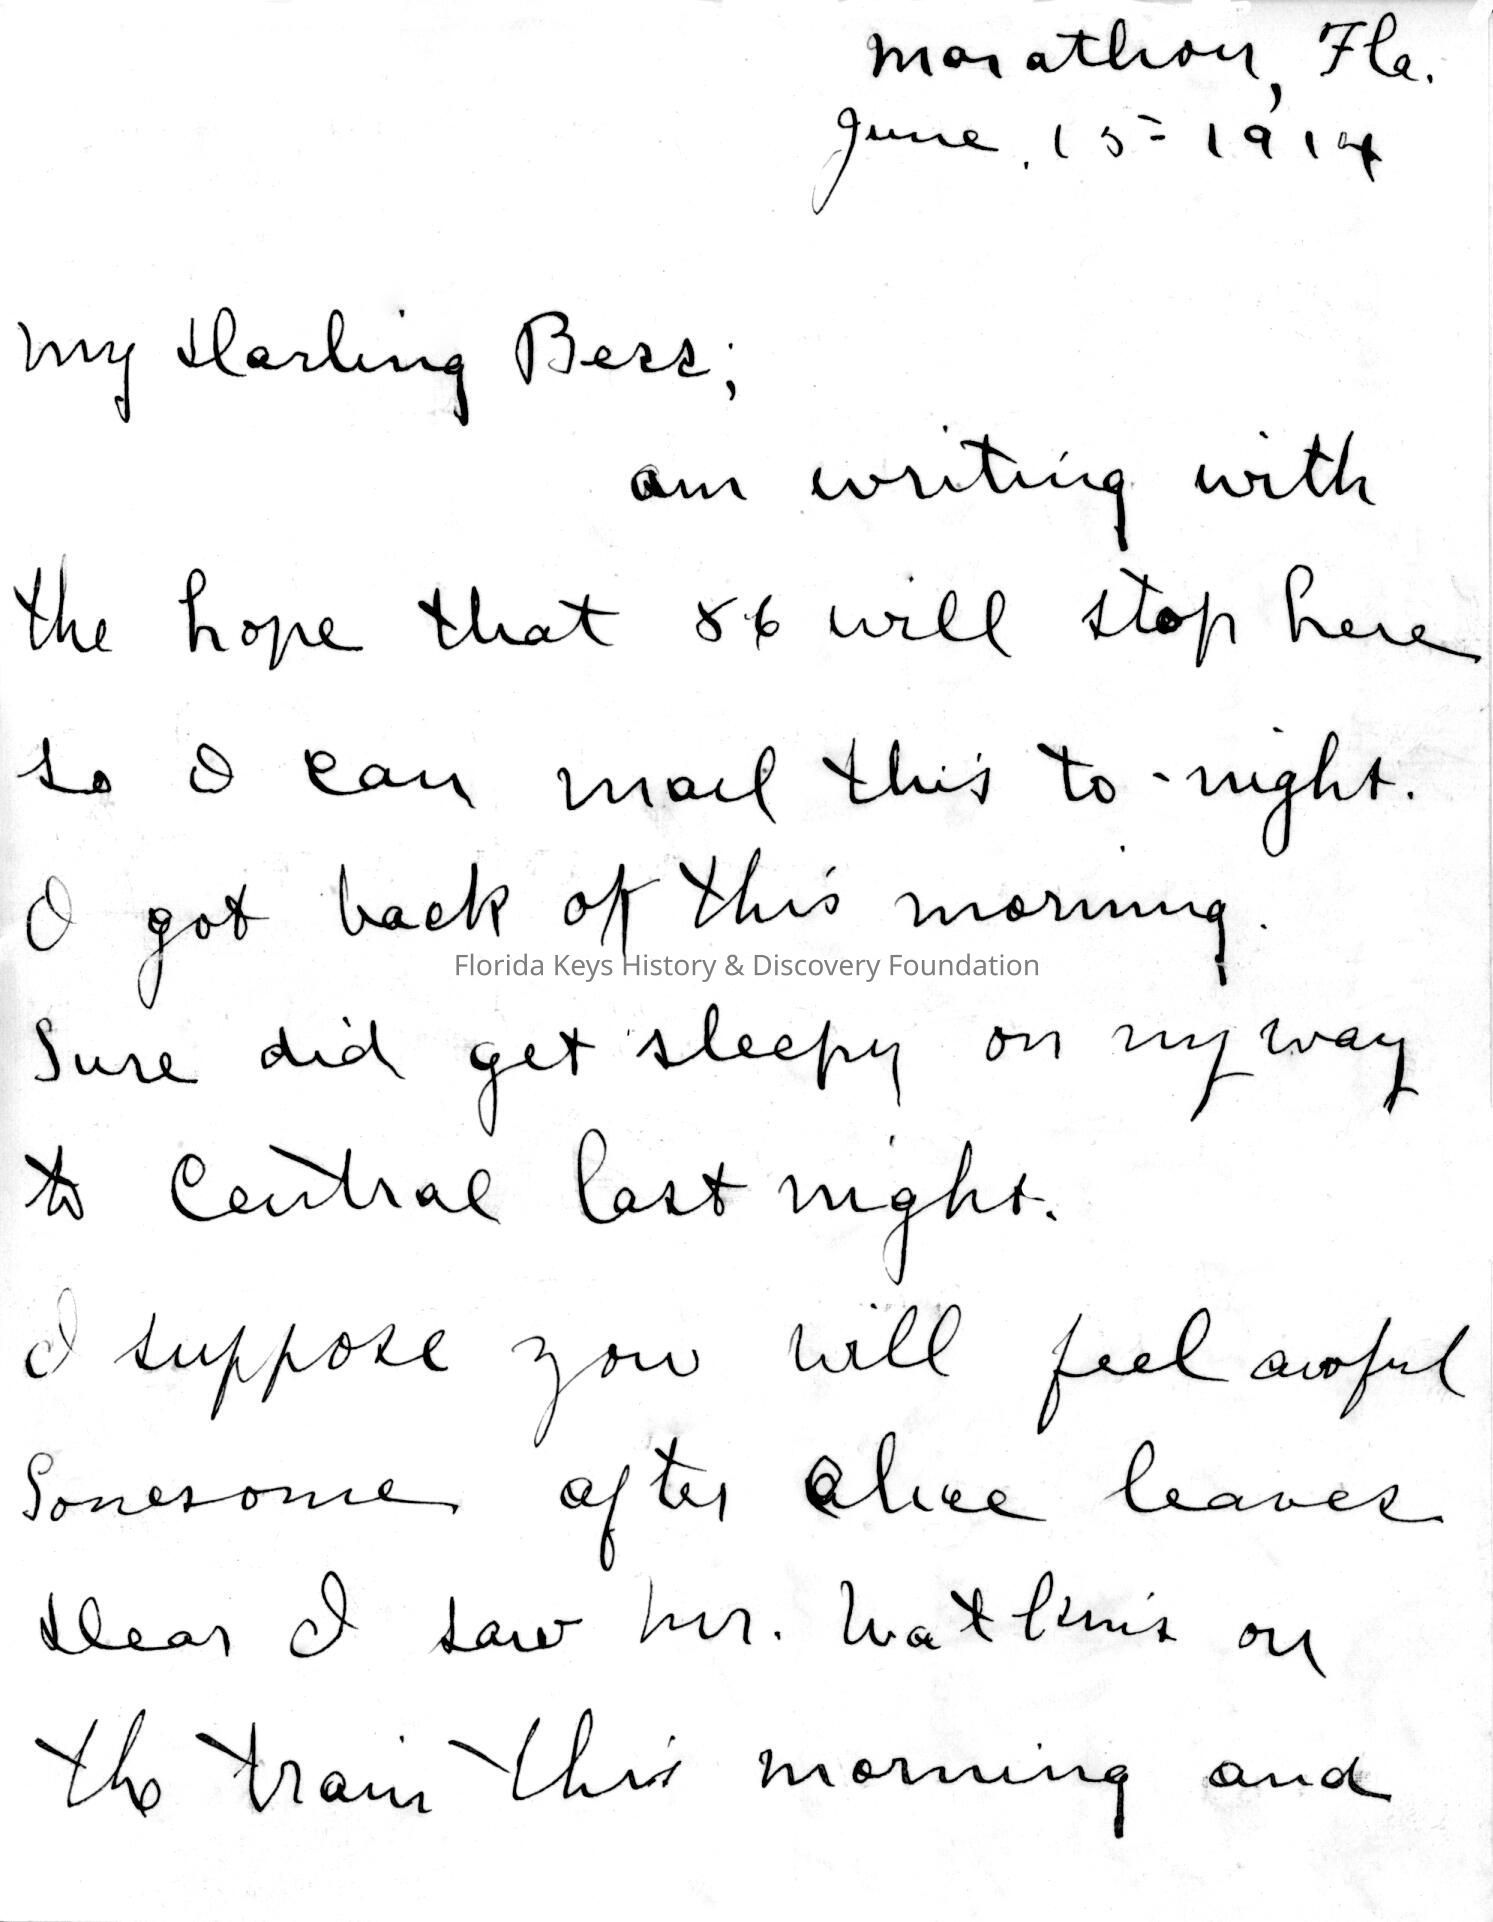 Marathon, Fla.
June. 15 = 1914
My Darling Bess;
am writing with
the hope that 86 will stop here
so I can mail this to-night.
I got back ok this morning.
Sure did get sleepy on my way
to Central last night.
I suppose you will feel awful
Lonesome after Alice leaves
Dear I saw Mr. Watkins on
the train this morning and
Florida Keys History & Discovery Foundation